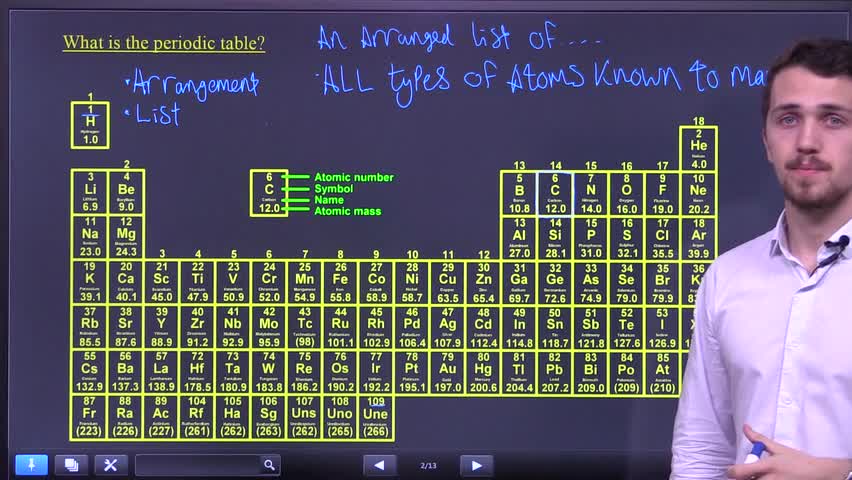 What is the periodic table?
An Arranged list of....
• Arrangement
• List
• ALL types of Atoms Known to
1
18
1
H
Hydrogen
1.0
2
He
Helium
4.0
2
13 14 15 16 17
3 4
Li Be
Lithium Beryllium
6.9 9.0
6 Atomic number
C Symbol
Carbon Name
12.0 Atomic mass
5 6 7 8 9 10
B C N O F Ne
Boron Carbon Nitrogen Oxygen Fluorine Neon
10.8 12.0 14.0 16.0 19.0 20.2
11 12
Na Mg
Sodium Magnesium
23.0 24.3
13 14 15 16 17 18
Al Si P S Cl Ar
27.0 28.1 31.0 32.1 35.5 39.9
3 4 5 6 7 8 9 10 11 12
19 20 21 22 23 24 25 26 27 28 29 30 31 32 33 34 35 36
K Ca Sc Ti V Cr Mn Fe Co Ni Cu Zn Ga Ge As Se Br
39.1 40.1 45.0 47.9 50.9 52.0 54.9 55.8 58.9 58.7 63.5 65.4 69.7 72.6 74.9 79.0 79.9
37 38 39 40 41 42 43 44 45 46 47 48 49 50 51 52 53
Rb Sr Y Zr Nb Mo Tc Ru Rh Pd Ag Cd In Sn Sb Te I
85.5 87.6 88.9 91.2 92.9 95.9 (98) 101.1 102.9 106.4 107.9 112.4 114.8 118.7 121.8 127.6 126.9
55 56 57 72 73 74 75 76 77 78 79 80 81 82 83 84 85
Cs Ba La Hf Ta W Re Os Ir Pt Au Hg Tl Pb Bi Po At
132.9 137.3 138.9 178.5 180.9 183.8 186.2 190.2 192.2 195.1 197.0 200.6 204.4 207.2 209.0 (209) (210)
87 88 89 104 105 106 107 108 109
Fr Ra Ac Rf Ha Sg Uns Uno Une
(223) (226) (227) (261) (262) (263) (262) (265) (266)
2/13